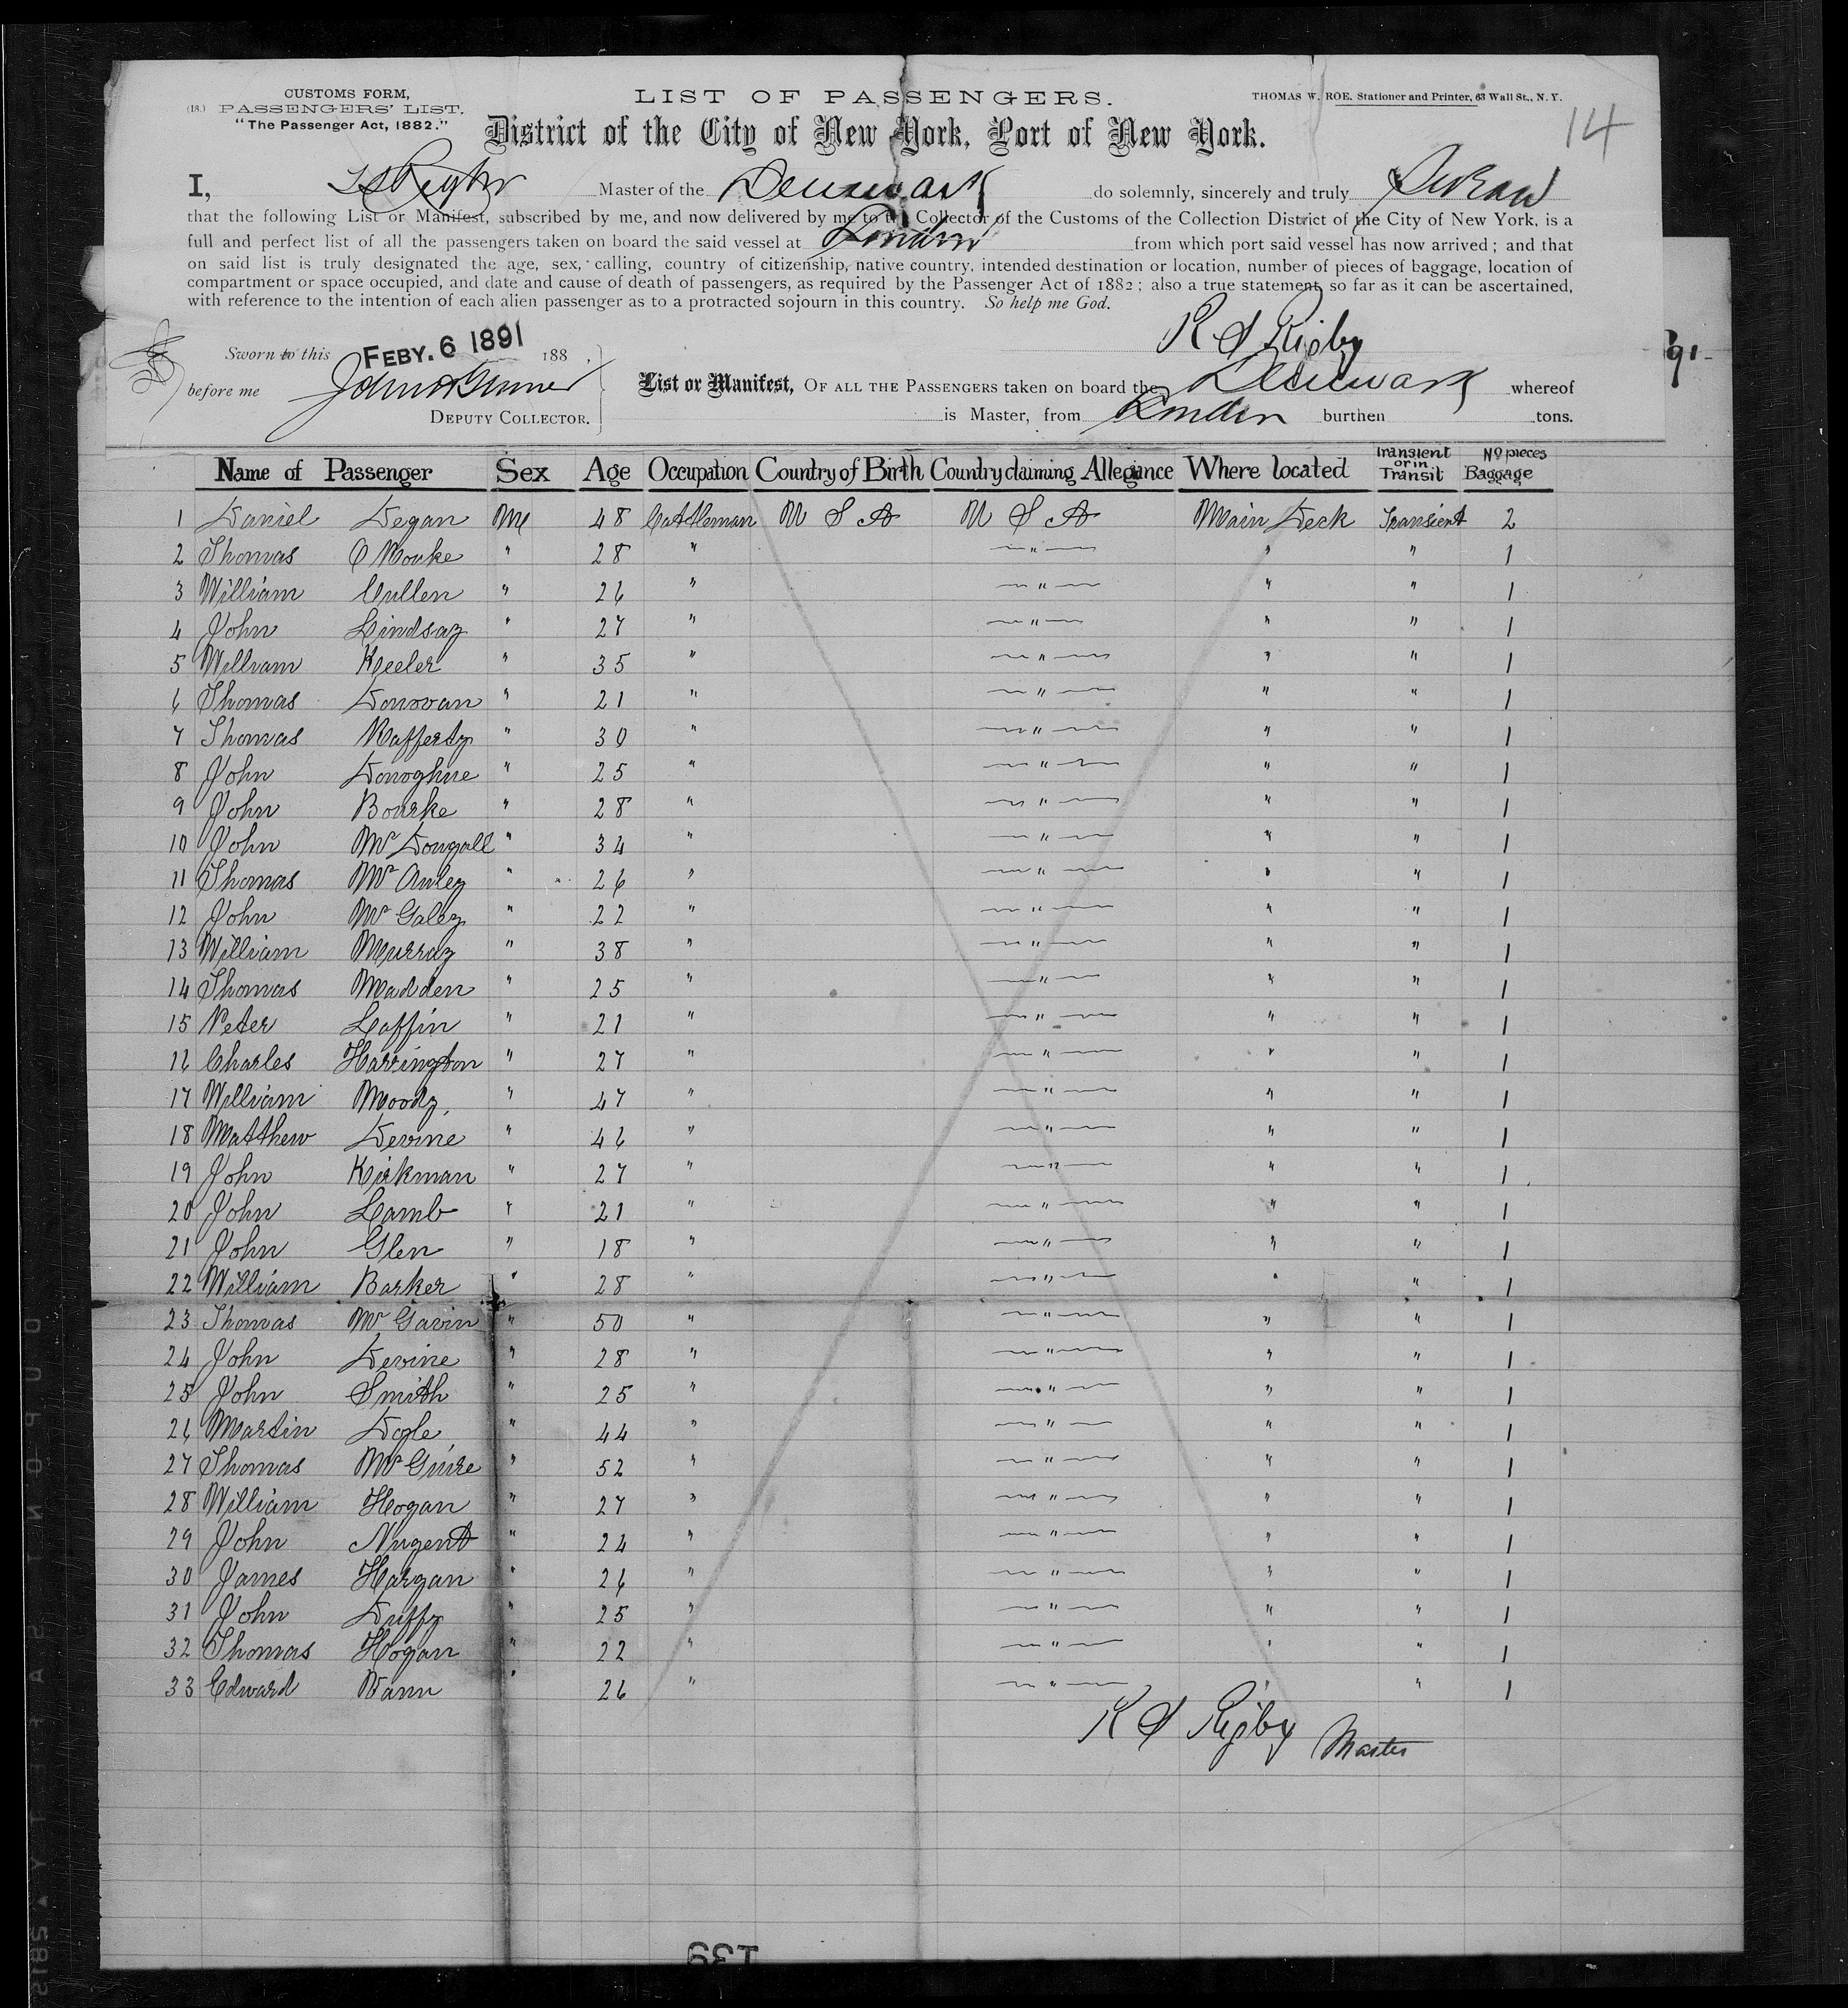 CUSTOMS FORM,
(18.) PASSENGERS' LIST.
"The Passenger Act, 1882."
LIST OF PASSENGERS.
THOMAS W. ROE, Stationer and Printer, 63 Wall St., N.Y.
14
District of the City of New York, Port of New York.
I, Master of the Denmark do solemnly, sincerely and truly Swear
that the following List or Manifest, subscribed by me, and now delivered by me to the Collector of the Customs of the Collection District of the City of New York, is a
full and perfect list of all the passengers taken on board the said vessel at London from which port said vessel has now arrived; and that
on said list is truly designated the age, sex, calling, country of citizenship, native country, intended destination or location, number of pieces of baggage, location of
compartment or space occupied, and date and cause of death of passengers, as required by the Passenger Act of 1882; also a true statement, so far as it can be ascertained,
with reference to the intention of each alien passenger as to a protracted sojourn in this country. So help me God.
R S Rigby
Sworn to this FEBY. 6 1891 188 ,
91-
before me
List or Manifest, OF ALL THE PASSENGERS taken on board the Denmark whereof
DEPUTY COLLECTOR.
is Master, from London burthen tons.
Name of Passenger Sex Age Occupation Country of Birth Country claiming Allegiance Where located Transient or in Transit No pieces Baggage
1 Daniel Degan M 48 Cattleman U S A U S A Main Deck Transient 2
2 Thomas O Rouke " 28 " " " " 1
3 William Cullen " 26 " " " " 1
4 John Lindsay " 27 " " " " 1
5 William Keeler " 35 " " " " 1
6 Thomas Donovan " 21 " " " " 1
7 Thomas Rafferty " 30 " " " " 1
8 John Donoghue " 25 " " " " 1
9 John Bourke " 28 " " " " 1
10 John Mc Dougall " 34 " " " " 1
11 Thomas Mc Auley " 26 " " " " 1
12 John Mc Galey " 22 " " " " 1
13 William Murray " 38 " " " " 1
14 Thomas Madden " 25 " " " " 1
15 Peter Laffin " 21 " " " " 1
16 Charles Harrington " 27 " " " " 1
17 William Moody, " 47 " " " " 1
18 Matthew Devine " 46 " " " " 1
19 John Kirkman " 27 " " " " 1
20 John Lamb " 21 " " " " 1
21 John Glen " 18 " " " " 1
22 William Barker " 28 " " " " 1
23 Thomas Mc Gavin " 50 " " " " 1
24 John Devine " 28 " " " " 1
25 John Smith " 25 " " " " 1
26 Martin Doyle " 44 " " " " 1
27 Thomas Mc Guire " 52 " " " " 1
28 William Hogan " 27 " " " " 1
29 John Nugent " 24 " " " " 1
30 James Hargan " 26 " " " " 1
31 John Duffy " 25 " " " " 1
32 Thomas Hogan " 22 " " " " 1
33 Edward Wann " 26 " " " " 1
R S Rigby Master
139